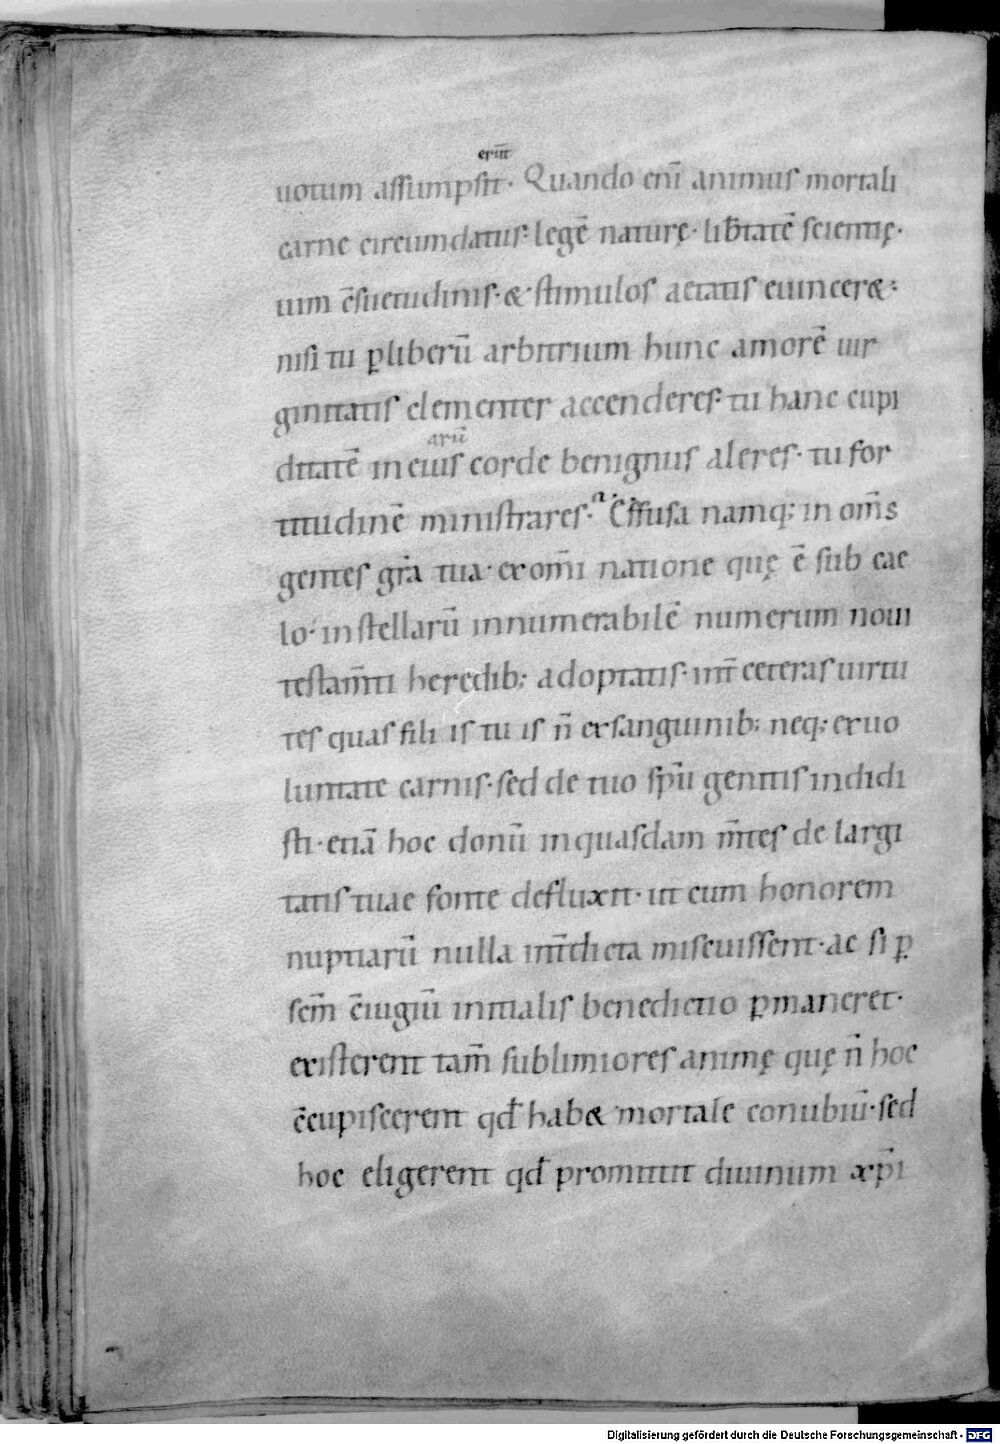 erīt
uotum assumpsit· Quando eni̅ animus mortali
carne circumdatus· legē naturę· lib̄tatē scientię·
uim c̄suetudinis· & stimulos aetatis euincer&·
nisi tu ꝑ liberū arbitrium hunc amorē uir
ginitatis clementer accenderes· tu hanc cupi
arū
ditatē in eius corde benignus aleres· tu for
titudinē ministrares· Effusa namq; in om̄s
gentes gr̄a tua· ex om̄i natione quę ē sub cae
lo· in stellarū innumerabilē numerum noui
testam̄ti heredib; adoptatis· int̄ ceteras uirtu
tes quas filiis tuis n̄ ex sanguinib; neq; ex uo
luntate carnis· sed de tuo sp̄u genitis indidi
sti· etiā hoc donū in quasdam m̄tes de largi
tatis tuae fonte defluxit· ut cum honorem
nuptiarū nulla int̄dicta miscuissent· ac si ꝑ
sem̄ c̄iugiū initialis benedictio ꝑmaneret·
existerent tam̄ sublimiores animę quę n̄ hoc
c̄cupiscerent qd̄ hab& mortale conubiū· sed
hoc eligerent qd̄ promittit diuinum xp̄i
Digitalisierung gefördert durch die Deutsche Forschungsgemeinschaft - DFG